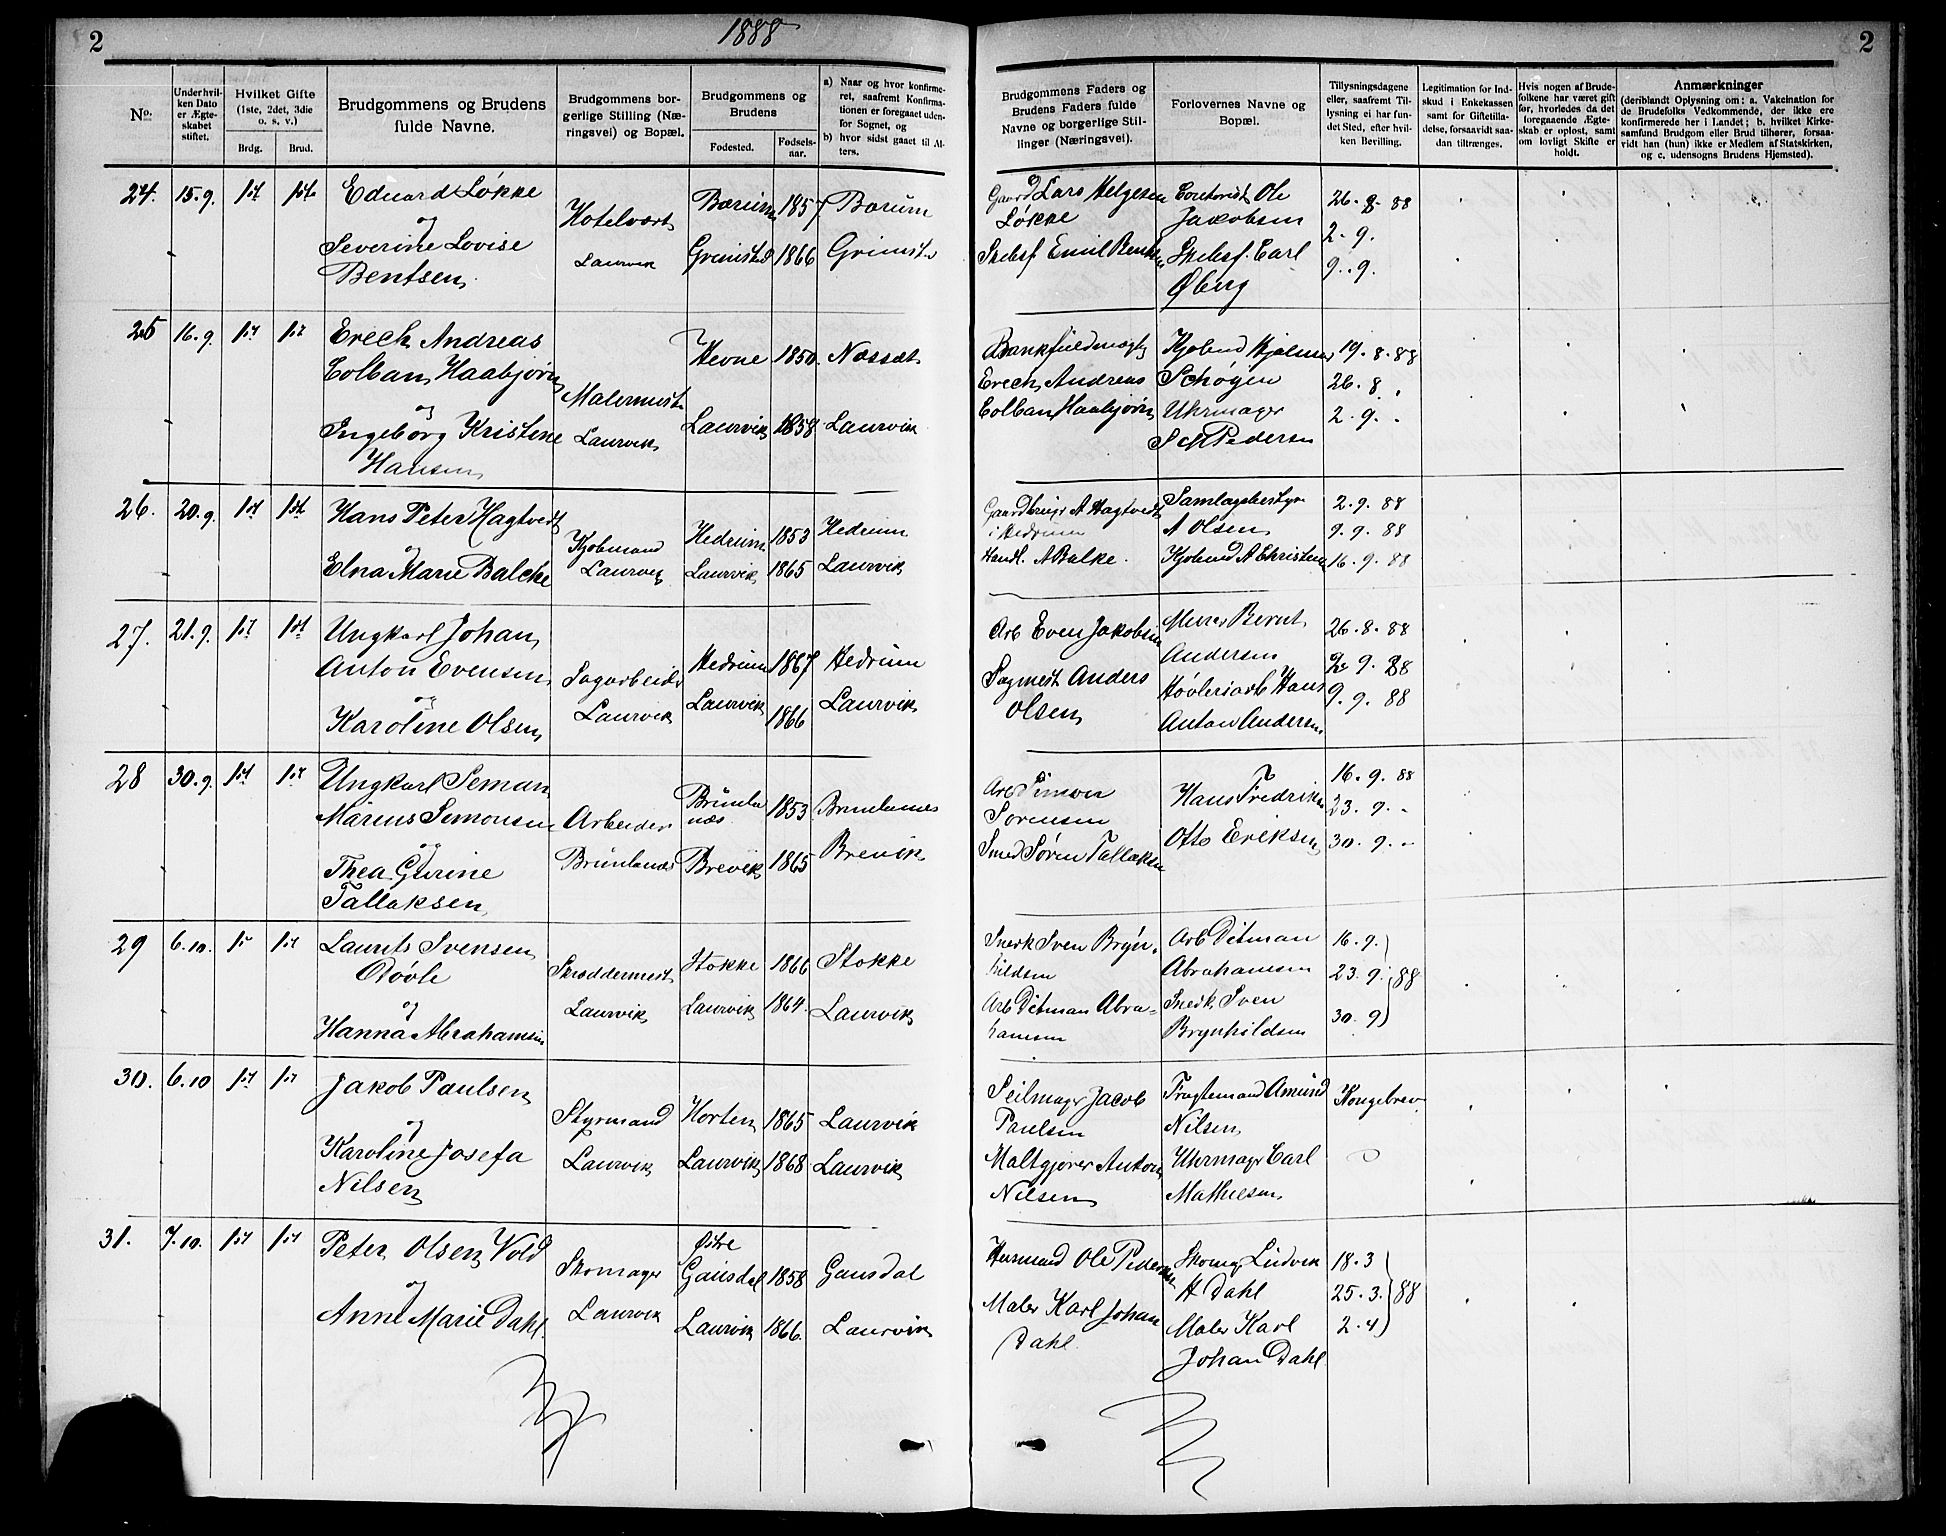 2
1888
2
No.
Under hvilken Dato er Ægteskabet stiftet.
Hvilket Gifte (1ste, 2det, 3die o. s. v.)
Brdg.
Brud.
Brudgommens og Brudens fulde Navne.
Brudgommens borgerlige Stilling (Næringsvei) og Bopæl.
Brudgommens og Brudens
Fødested.
Fødselsaar.
a) Naar og hvor konfirmeret, saafremt Konfirmationen er foregaaet udenfor Sognet, og
b) hvor sidst gaaet til Alters.
Brudgommens Faders og Brudens Faders fulde Navne og borgerlige Stillinger (Næringsvei).
Forlovernes Navne og Bopæl.
Tillysningsdagene eller, saafremt Tillysning ei har fundet Sted, efter hvilken Bevilling.
Legitimation for Indskud i Enkekassen samt for Giftetilladelse, forsaavidt saadan tiltrænges.
Hvis nogen af Brudefolkene har været gift, hvorledes da det foregaaende Ægteskab er opløst, samt om lovligt Skifte er holdt.
Anmærkninger
(deriblandt Oplysning om: a. Vakcination for de Brudefolks Vedkommende, der ikke ere konfirmerede her i Landet; b. hvilket Kirkesamfund Brudgom eller Brud tilhører, forsaavidt han (hun) ikke er Medlem af Statskirken, og c. udensogns Brudens Hjemsted).
24. 15.9. 1st 1ste Eduard Løkke Hotelvært Bærum 1857 Bærum Gaard Lars Helgesen Ole 26.8.88
og Løkke Jakobsen 2.9.
Severine Lovise Laurvik Grimstad 1866 Grimst. Skibsf Emil Bentsen Skibsf. Carl 9.9.
Bentsen Øberg
25 16.9. 1st 1st Erech Andreas Hevne 1850 Næsset Bankfuldmægtig Kjøbmd Hjalmar 19.8.88
Colban Haabjørn Malermest. Erech Andreas Schøgen 26.8.
og Colban Haabjørn Uhrmager 2.9.
Ingeborg Kristine Laurvik Laurvik 1858 Laurvik Pedersen
Hansen
26. 20.9. 1st 1ste Hans Peter Hagtvedt Kjøbmand Hedrum 1853 Hedrum Gaardbruger A Hagtvedt Samlagsbestyr 2.9.88
og i Hedrum A Olsen 9.9.88
Elna Marie Balcke Laurvig Laurvik 1865 Laurvik Handl. A Balke. Kjøbmd A Christensen 16.9.88
27. 21.9. 1st 1st Ungkarl Johan Hedrum 1867 Hedrum Arb Even Jakobsen Murer Bernt 26.8.88
Anton Evensen Sagarbeider Andersen 2.9.88
og Sagmest Anders Høvleriarb Hans 9.9.88
Karoline Olsen Laurvik Laurvik 1866 Laurvik Olsen Anton Andersen
28 30.9. 1st 1st Ungkarl Seman Brunlanæs 1853 Brunlanæs Arb Simon Hans Fredriksen 16.9.88
Marius Simonsen Arbeider Sørensen 23.9.
og
Thea Gurine Brunlanæs Brevik 1865 Brevik Smed Søren Tallaksen Otto Eriksen 30.9.
Tallaksen
29 6.10. 1st 1st Laurits Svensen Skræddermest Stokke 1866 Stokke Snedk Sven Brynhildsen Arb Ditman 16.9.
Røvle Abrahamsen 23.9. 88
og
Hanna Abrahamsen Laurvik Laurvik 1864. Laurvik Arb Ditman Abrahamsen Snedk. Sven 30.9
Brynhildsen
30. 6.10 1st 1st Jakob Paulsen Styrmand Horten 1865 Laurvik Seilmager Jacob Fragtemand Amund Kongebrev
og Paulsen Nilsen
Karoline Josefa Laurvik Laurvik 1868 Laurvik Maltgjører Anton Uhrmager Carl
Nilsen Nilsen Mathiesen
31. 7.10. 1st 1st Peter Olsen Vold Skomager Østre Gausdal 1858 Gausdal Husmand Ole Pedersen Skomag Ludvik 18.3
og H Dahl 25.3. 88
Anne Marie Dahl Laurvik Laurvik 1866. Laurvik Maler Karl Johan Maler Karl 2.4
Dahl Johan Dahl